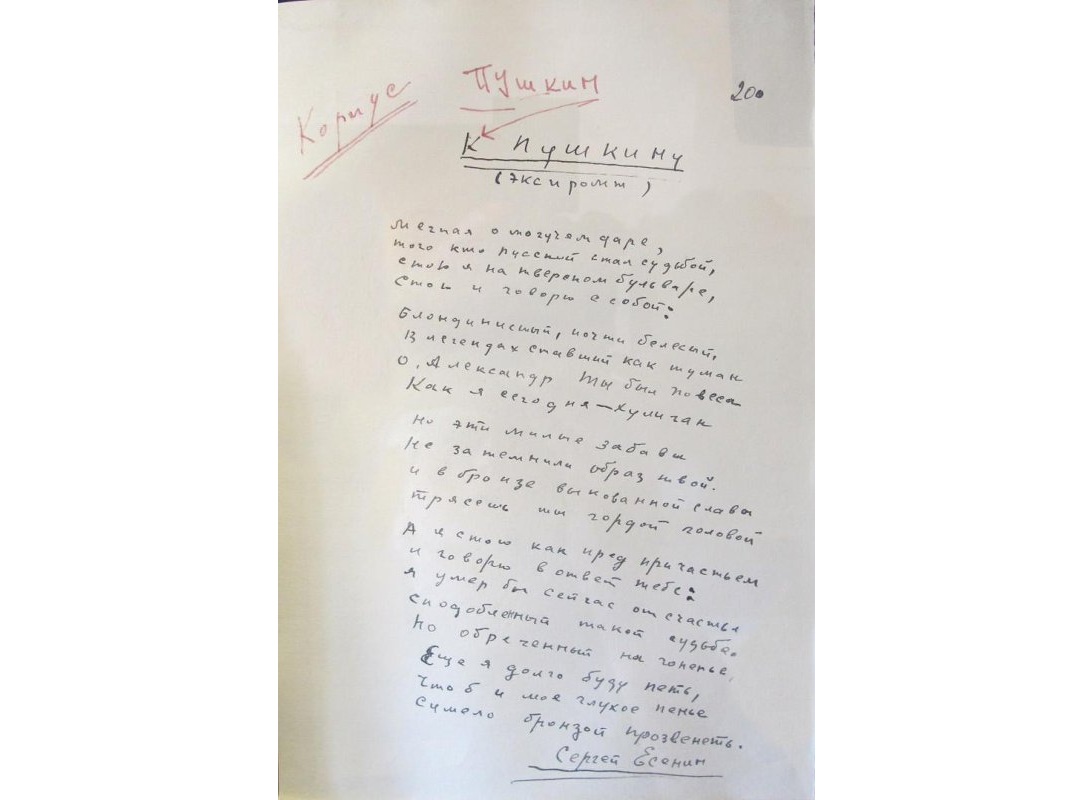 Корпус
Пушкин
20
К Пушкину
(Экспромт)
Мечтая о могучем даре,
того кто русской стал судьбой,
стою я на тверском бульваре,
Стою и говорю с собой:
Блондинистый, почти белесый,
В легендах ставший как туман
О, Александр Ты был повеса
Как я сегодня – хулиган
Но эти милые забавы
Не затемнили образ твой.
и в бронзе выкованной славы
трясешь ты гордой головой
А я стою как пред причастьем
и говорю в ответ тебе:
я умер бы сейчас от счастья
сподобленный такой судьбе.
Но обреченный на гоненье,
Еще я долго буду петь,
Чтоб и мое глухое пенье
сумело бронзой прозвенеть.
Сергей Есенин